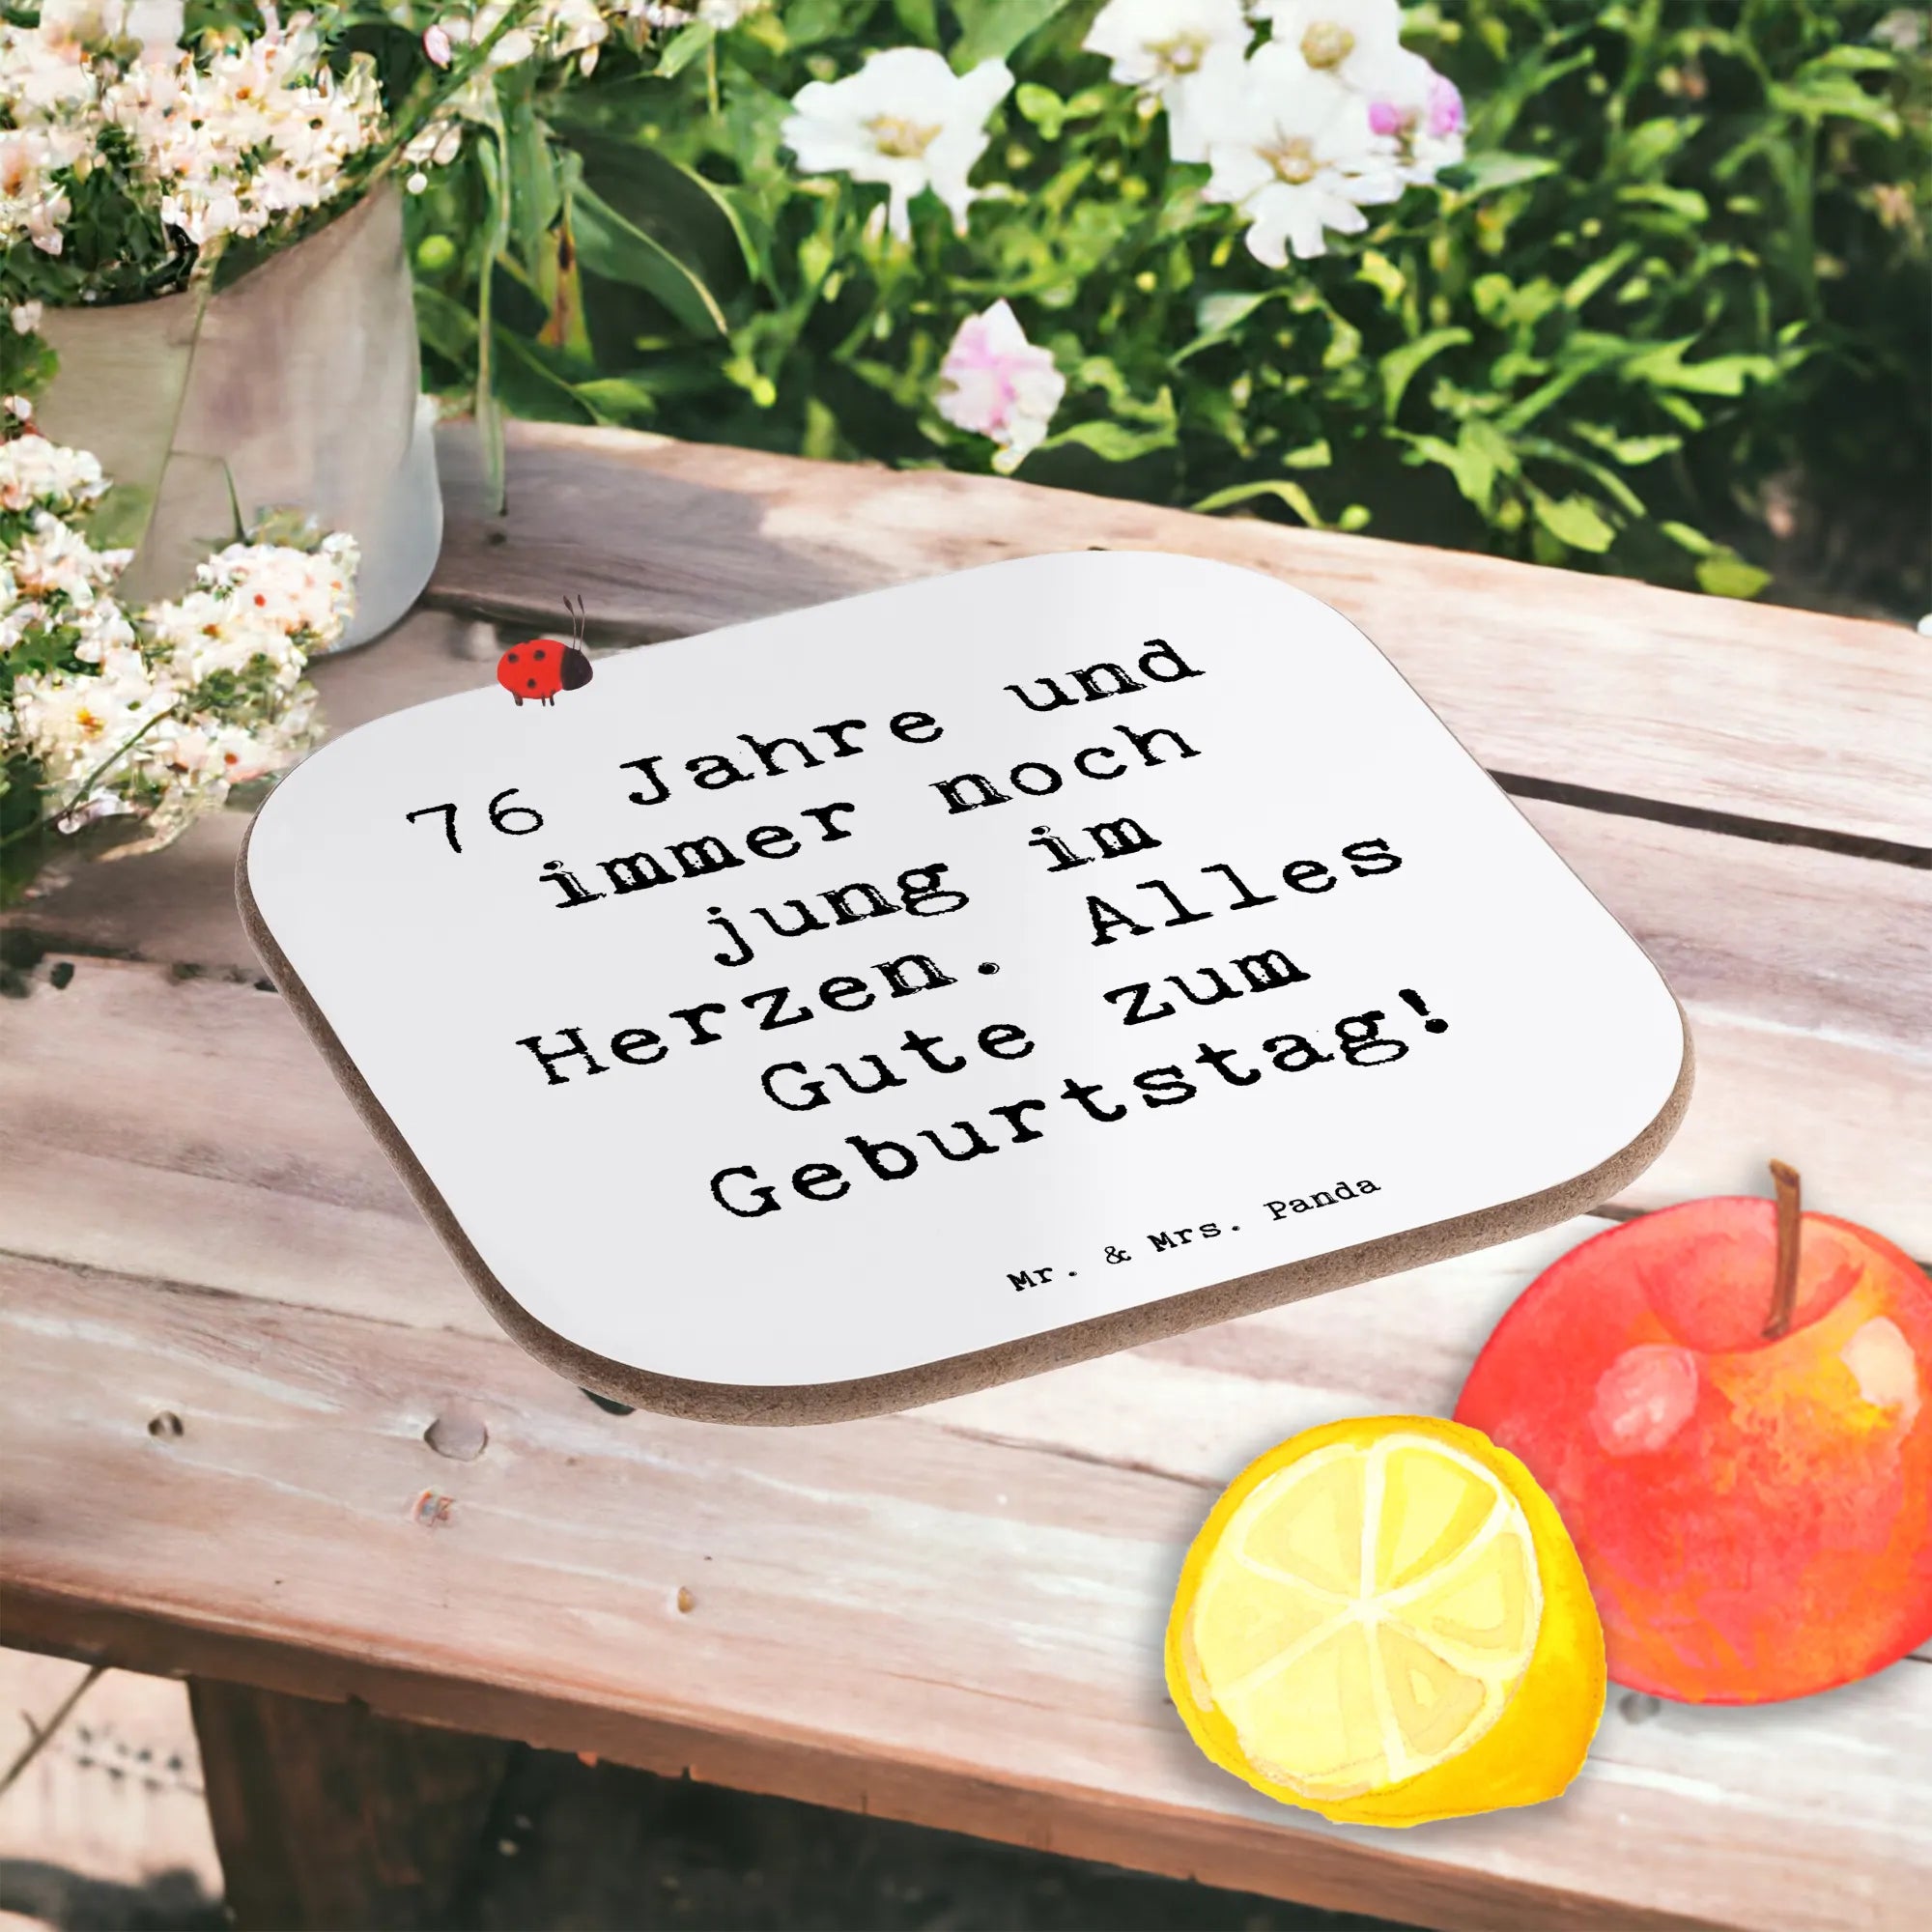 76 Jahre und
immer noch
jung im
Herzen. Alles
Gute zum
Geburtstag!
Mr. & Mrs. Panda